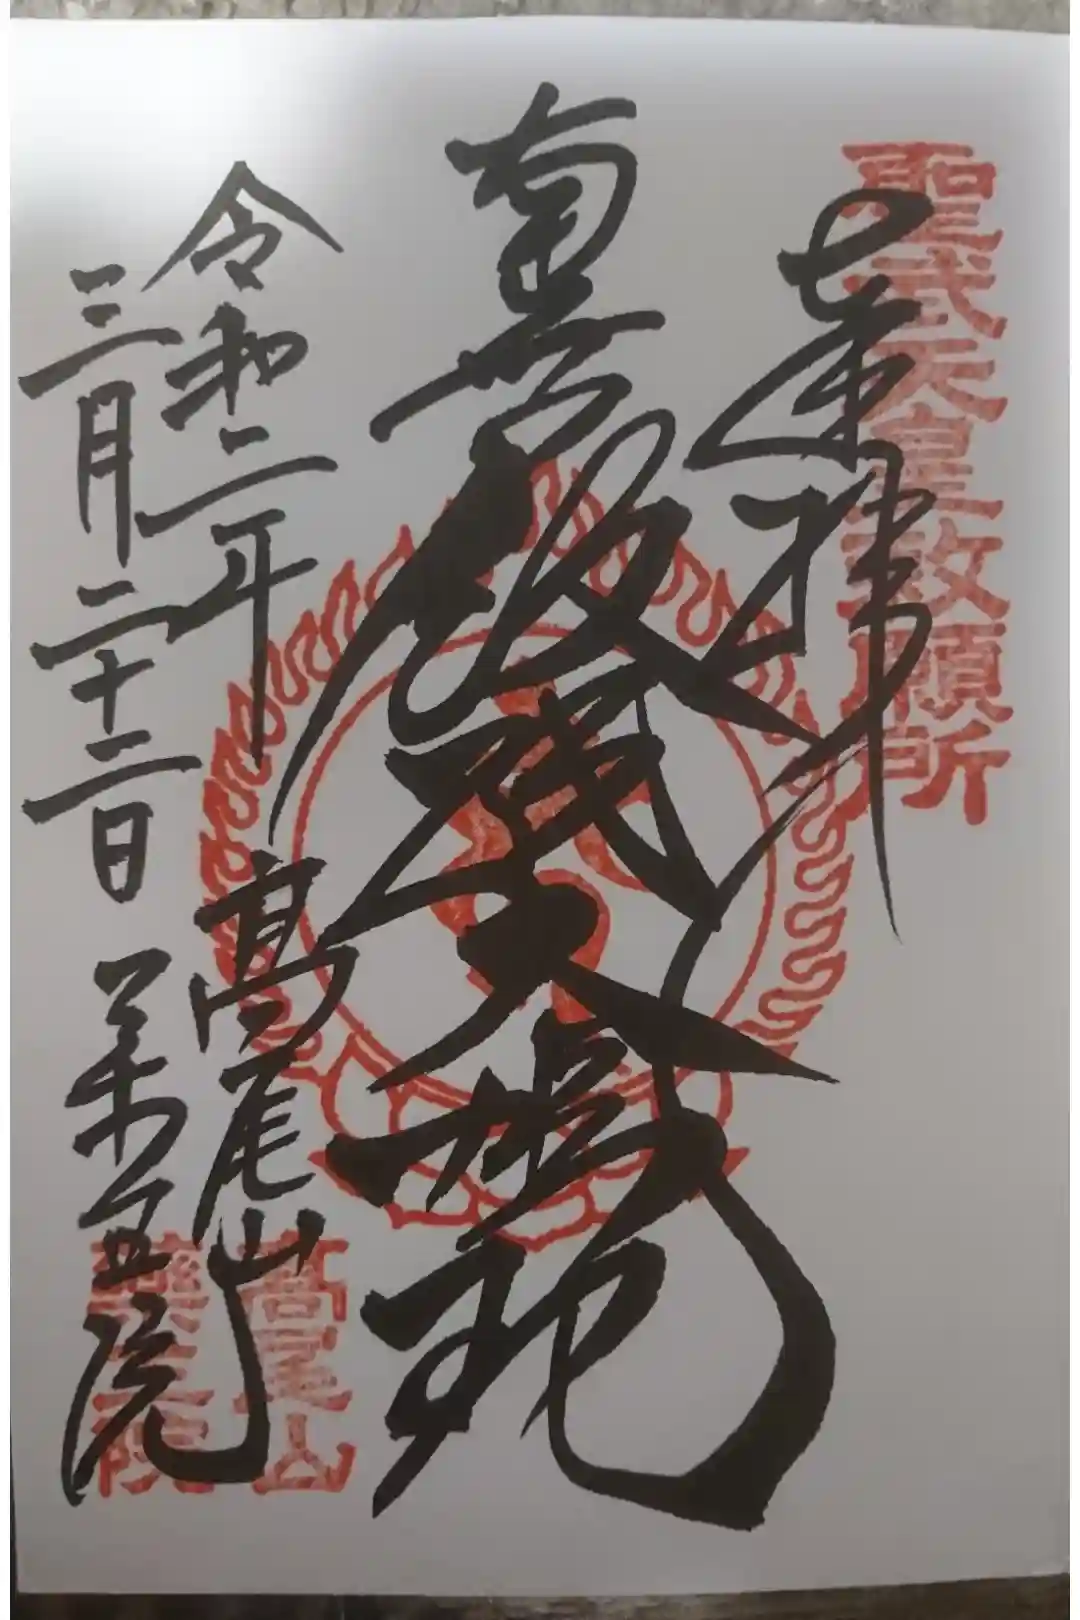 聖武天皇敕願所
奉拝
南無飯縄大権現
令和二年
三月二十二日
高尾山
薬王院
高尾山
薬王院